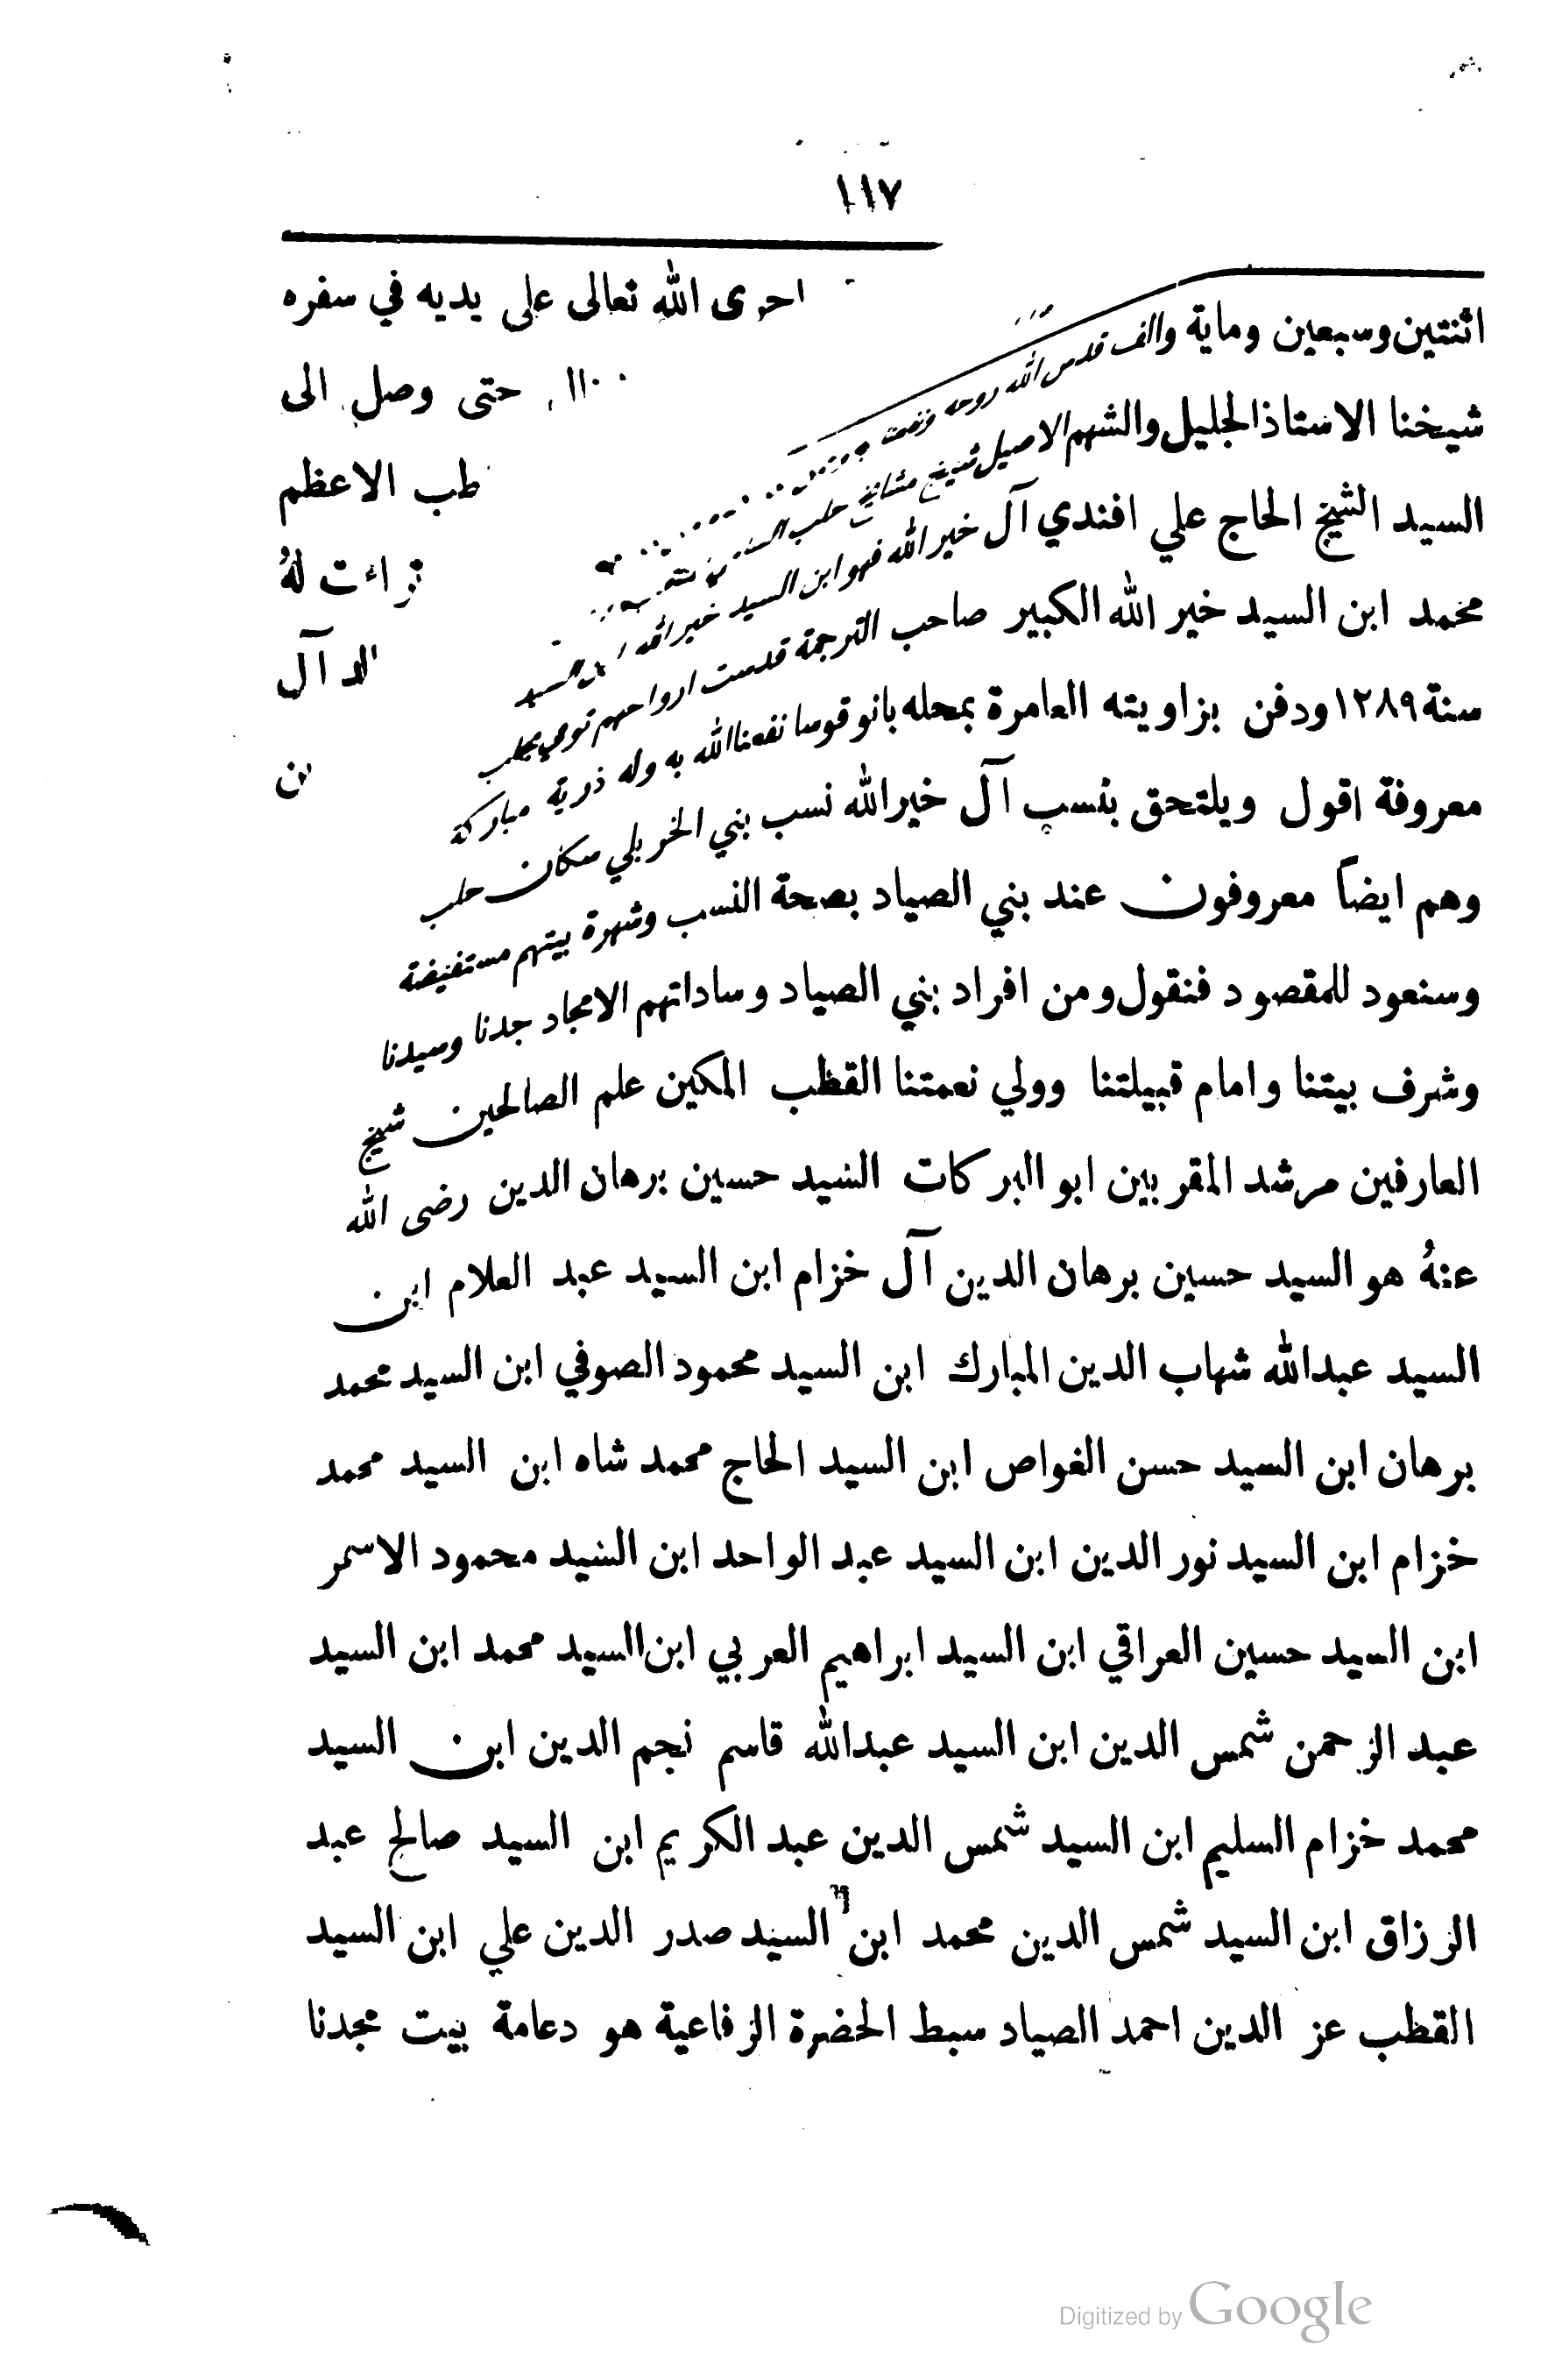 ١١٧
اثنتين وسبعين وماية والف قدس الله روحه
شيخنا الاستاذ الجليل والشهم الاصيل شيخ مشايخ حلب
السيد الشيخ الحاج علي افندي آل خير الله فهو ابن السيد خير الله ابن السيد
محمد ابن السيد خير الله الكبير صاحب الترجمة قدست ارواحهم توفي بحلب
سنة ١٢٨٩ ودفن بزاويته العامرة بمحله بانوقوسا نفعنا الله به وله ذرية مباركة
معروفة اقول ويلتحق بنسب آل خير الله نسب بني الخربلي سكان حلب
وهم ايضاً معروفون عند بني الصياد بصحة النسب وشهرة بيتهم مستفيضة
وسنعود للمقصود فنقول ومن افراد بني الصياد وساداتهم الامجاد جدنا وسيدنا
وشرف بيتنا وامام قبيلتنا وولي نعمتنا القطب المكين علم الصالحين شيخ
العارفين مرشد المقربين ابو البركات السيد حسين برهان الدين رضى الله
عنهُ هو السيد حسين برهان الدين آل خزام ابن السيد عبد العلام ابن
السيد عبدالله شهاب الدين المبارك ابن السيد محمود الصوفي ابن السيد محمد
برهان ابن السيد حسن الغواص ابن السيد الحاج محمد شاه ابن السيد محمد
خزام ابن السيد نور الدين ابن السيد عبد الواحد ابن السيد محمود الاسمر
ابن السيد حسين العراقي ابن السيد ابراهيم العربي ابن السيد محمد ابن السيد
عبد الرحمن شمس الدين ابن السيد عبدالله قاسم نجم الدين ابن السيد
محمد خزام السليم ابن السيد شمس الدين عبد الكريم ابن السيد صالح عبد
الرزاق ابن السيد شمس الدين محمد ابن السيد صدر الدين علي ابن السيد
القطب عز الدين احمد الصياد سبط الحضرة الرفاعية هو دعامة بيت مجدنا
الله تعالى على يديه في سفره
حتى وصل الى
الاعظم
لهُ
آل
Digitized by Google